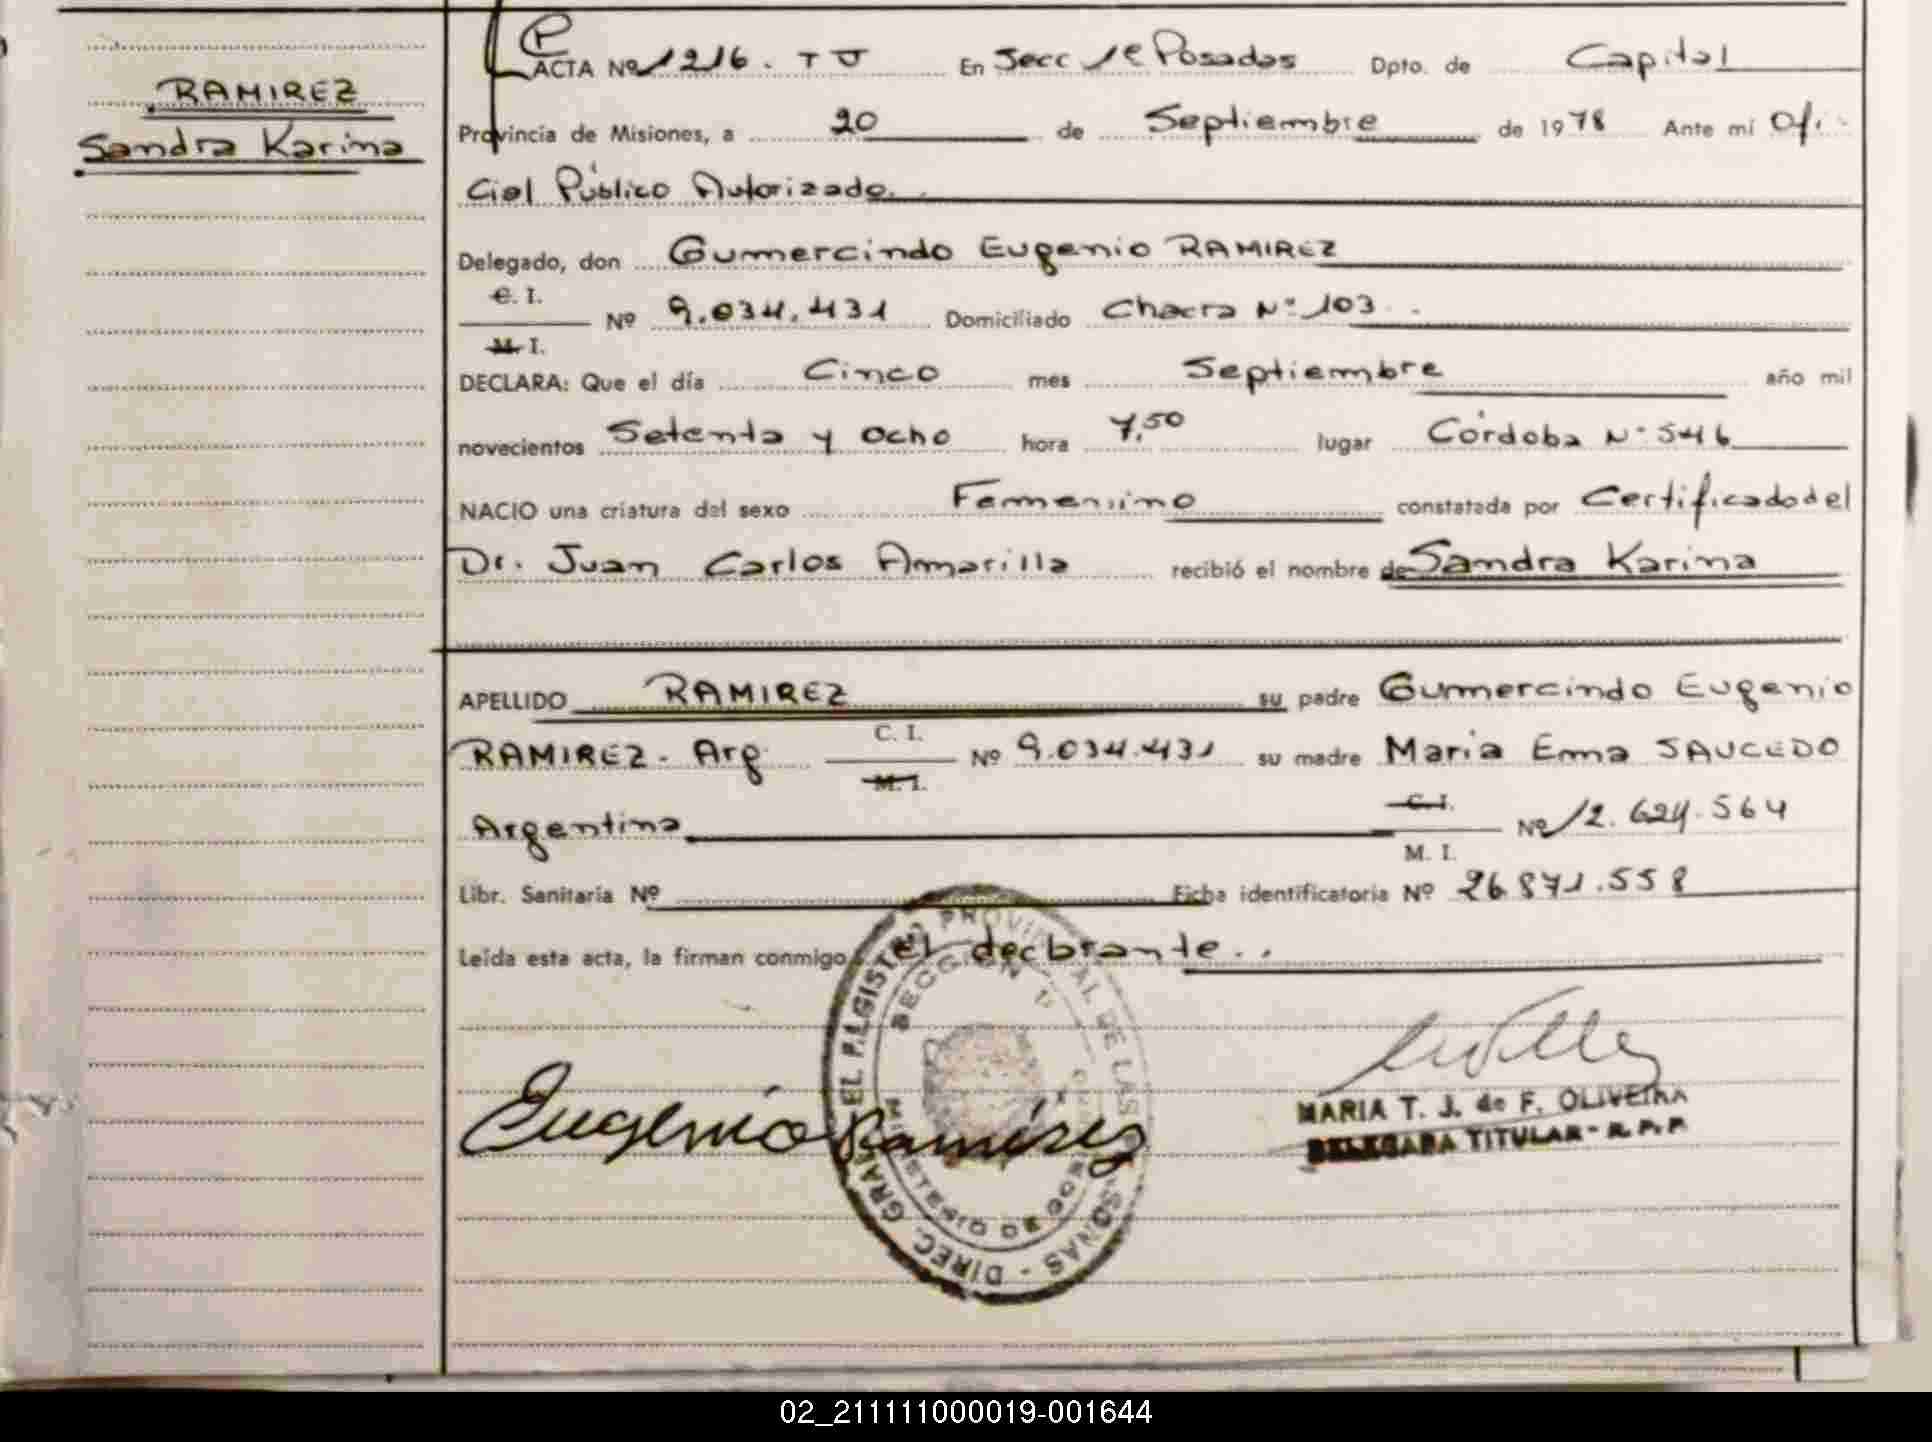 RAMIREZ
Sandra Karina
P
ACTA Nº 1216. TJ En Secc 1ª Posadas Dpto. de Capital
Provincia de Misiones, a 20 de Septiembre de 1978 Ante mí Ofi-
cial Público Autorizado.
Delegado, don Gumercindo Eugenio RAMIREZ
C. I.
Nº 9.034.431 Domiciliado Chacra Nº 103.
M. I.
DECLARA: Que el día Cinco mes Septiembre año mil
novecientos Setenta y Ocho hora 7,50 lugar Córdoba Nº 546
NACIO una criatura del sexo Femenino constatada por Certificado del
Dr. Juan Carlos Amarilla recibió el nombre de Sandra Karina
APELLIDO RAMIREZ su padre Gumercindo Eugenio
C. I.
RAMIREZ - Arg. Nº 9.034.431 su madre María Ema SAUCEDO
M. I.
C. I.
Argentina Nº 12.624.564
M. I.
Libr. Sanitaria Nº Ficha identificatoria Nº 26.871.558
Leída esta acta, la firman conmigo el declarante.
SECCION 1ª
DIREC. GRAL. DEL REGISTRO PROVINCIAL DE LAS PERSONAS
Eugenio Ramírez
MARIA T. J. de F. OLIVEIRA
DELEGADA TITULAR - R. P. P.
02_211111000019-001644